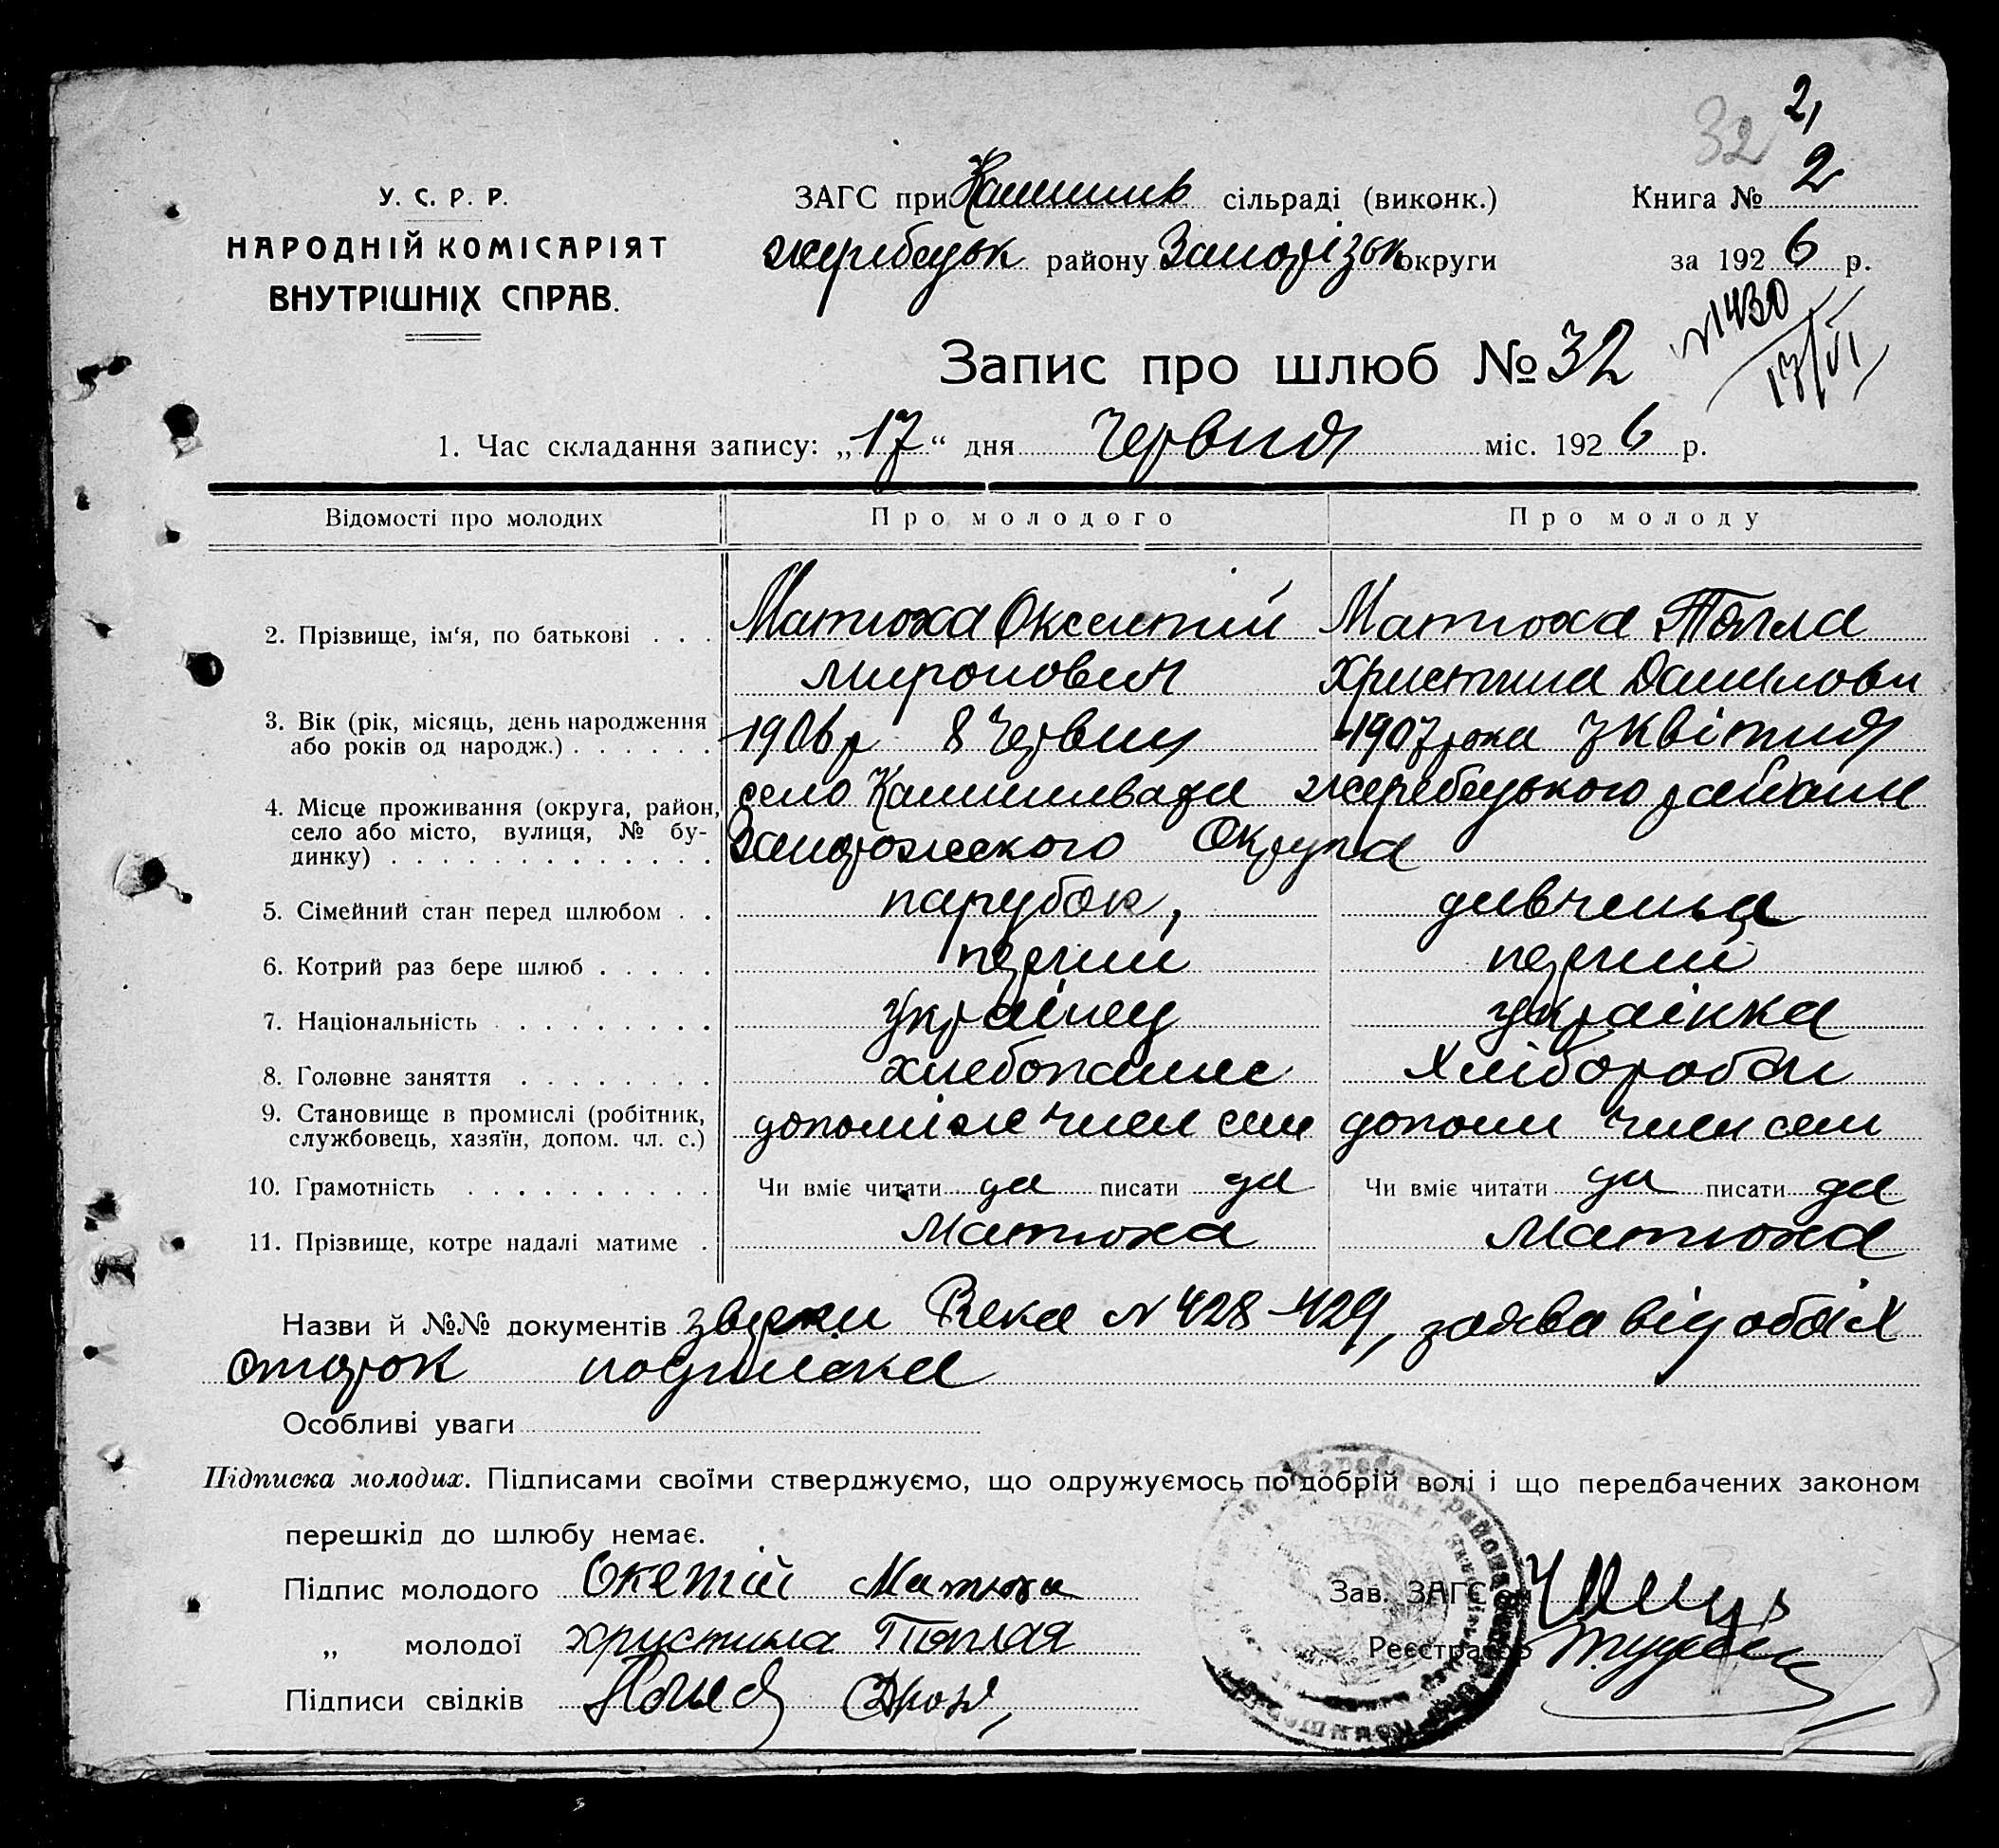 32 2,
У. С. Р. Р.
НАРОДНІЙ КОМІСАРІЯТ
ВНУТРІШНІХ СПРАВ.
ЗАГС при Камишив сільраді (виконк.)
Книга № 2
жеребецьк району Запорізьк округи
за 1926 р.
Запис про шлюб № 32
N 1430
17/VI
1. Час складання запису: „17“ дня Червня міс. 1926 р.
Відомості про молодих
Про молодого
Про молоду
2. Прізвище, ім‘я, по батькові . . .
Матюха Оксентій
Миронович
Матюха Тепла
Христина Данилови
3. Вік (рік, місяць, день народження
або років од народж.) . . . . . .
1906 р 8 Червня
1907 рока 7 квітня
4. Місце проживання (округа, район,
село або місто, вулиця, № бу-
динку) . . . . . . . . . . . . .
село Камишиваха жеребецького району
Запорожского Округа
5. Сімейний стан перед шлюбом . .
парубок,
дивчина
6. Котрий раз бере шлюб . . . . .
перший
перший
7. Національність . . . . . . . .
українец
українка
8. Головне заняття . . . . . . . .
хлебопашес
Хлібороб
9. Становище в промислі (робітник,
службовець, хазяїн, допом. чл. с.)
допоміже член сем
допоми член сем
10. Грамотність . . . . . . . . . .
Чи вміє читати да писати да
Чи вміє читати да писати да
11. Прізвище, котре надалі матиме .
Матюха
Матюха
Назви й №№ документів Века N 428-429, заява від обоіх
сторок подписка
Особливі уваги
Підписка молодих. Підписами своїми стверджуємо, що одружуємось по добрій волі і що передбачених законом
перешкід до шлюбу немає.
Підпис молодого Окетій Матюха
Зав. ЗАГС‘ом
„ молодої Христина Теплая
Реєстратор
Підписи свідків